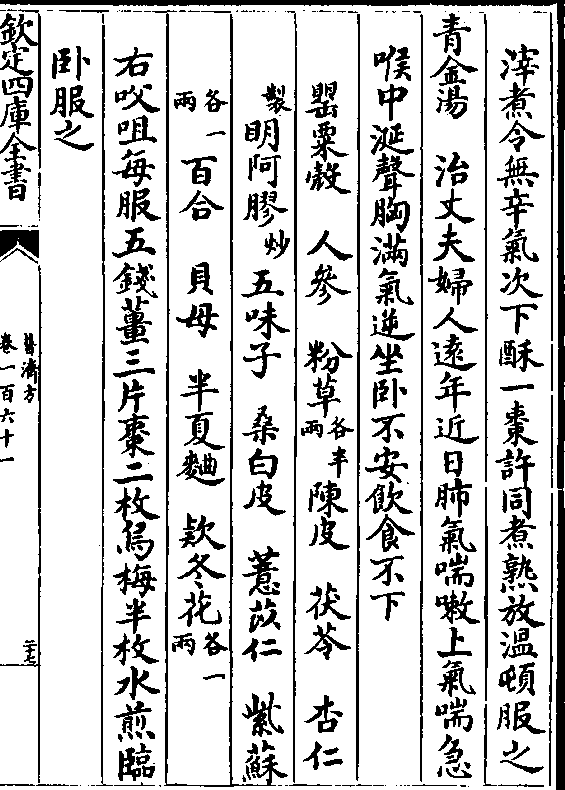 滓煮令無辛氣次下酥一棗許同煮熟放温頓服之
青金湯　治丈夫婦人遠年近日肺氣喘嗽上氣喘急
喉中涎聲胸滿氣逆坐卧不安飲食不下
罌粟殼　人參　粉草各半兩陳皮　茯苓　杏仁
製明阿膠炒五味子　桑白皮　薏苡仁　紫蘇
各一兩百合　貝母　半夏麯　欵冬花各一兩
右㕮咀每服五錢薑三片棗二枚烏梅半枚水煎臨
卧服之
欽定四庫全書
普濟方
卷一百六十一
二十七